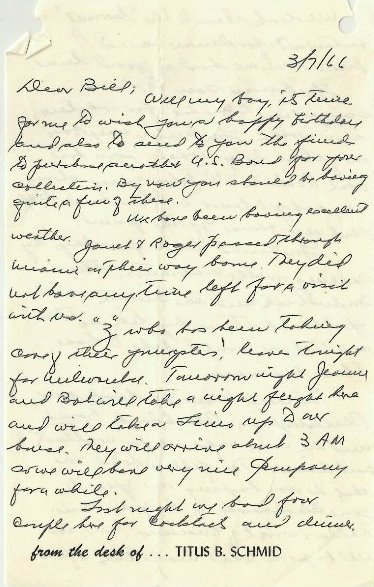 3/7/66
Dear Bill;
Well my boy, it's time
for me to wish you a happy birthday
and also to send to you the funds
to purchase another U.S. Bond for your
collection. By now you should be having
quite a few of these.
We have been having excellent
weather. Janet & Roger passed through
Miami on their way home. They did
not have any time left for a visit
with us. "Z" who has been taking
care of their youngsters, leaves tonight
for Milwaukee. Tomorrow night Jeanne
and Bob will take a night flight here
and will take a Limo up to our
house. They will arrive about 3 AM
so we will have very nice Company
for a while.
Last night we had four
couple here for cocktails and dinner.
from the desk of . . . TITUS B. SCHMID